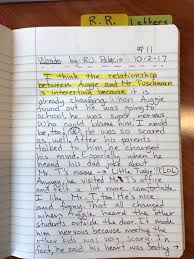 R.R. Letters
#11
Wonder by R.J. Palacio 10-2-17
I think the relationship
between Auggie and Mr. Tushman
is interesting because it is
already changing. When Auggie
found out he was going to
school he was super nervous.
Who could blame him. I would
be too! He was so scared
as well. After his parents
talked to him he changed
his mind. Especially when he
heard his dad joke about
Mr. T's name Little Tushy! (LOL)
Anyway he visited Mr. T and
felt a lot more comfortable.
I like Mr. T too! He's nice
and funny. That all changed
when Auggie heard the other
students outside the door. It made
him nervous because meeting the
other kids was very scary. In
fact, he said his heart was beating